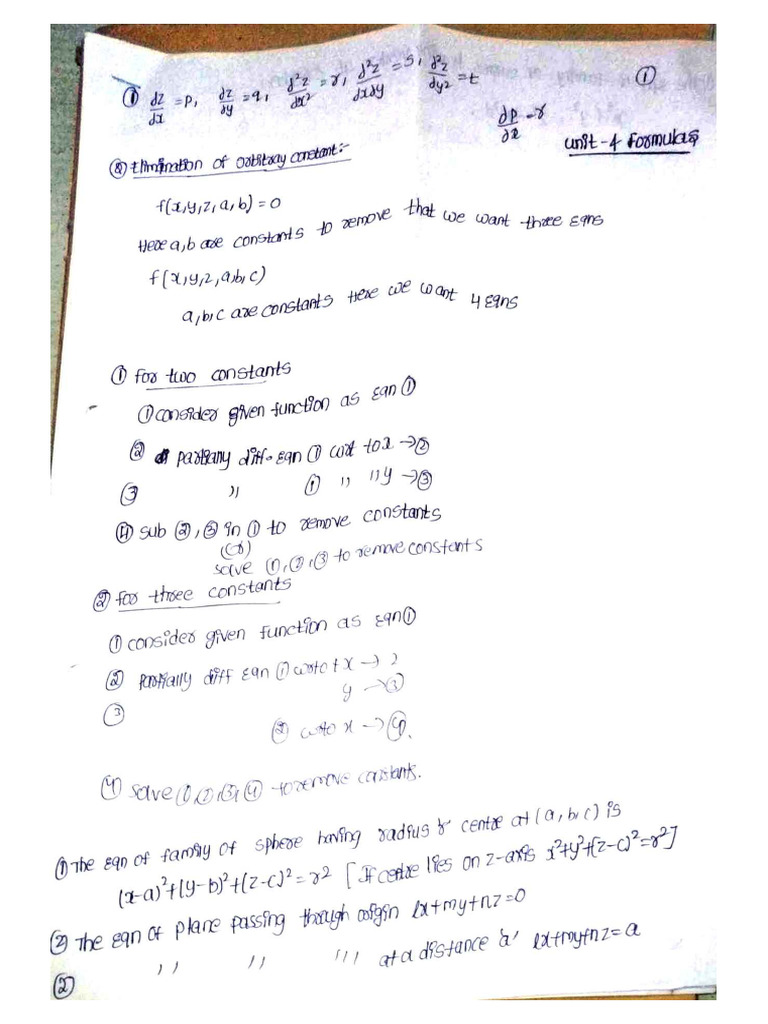 ① dz/dx = P, dz/dy = q, d²z/dx² = r, d²z/dxdy = s, d²z/dy² = t ①
∂P/∂x = r
unit-4 Formulas
② Elimination of orbitray constant:-
f(x,y,z,a,b) = 0
Here a,b are constants to remove that we want three Eqns
f(x,y,z,a,b,c)
a,b,c are constants Here we want 4 Eqns
① for two constants
① consider given function as Eqn ①
② partially diff. Eqn ① wrt to x → ②
③ ,, ① ,, ,, y → ③
④ sub ②, ③ in ① to remove constants
(or)
solve ①, ②, ③ to remove constants
② for three constants
① consider given function as Eqn ①
② partially diff Eqn ① wrto x → 2
③ y → ③
② wrto x → ④.
④ solve ①, ②, ③, ④ to remove constants.
① The Eqn of family of sphere having radius 'r' centre at (a,b,c) is
(x-a)²+(y-b)²+(z-c)² = r² [If centre lies on z-axis x²+y²+(z-c)²=r²]
② The Eqn of plane passing through origin lx+my+nz=0
,, ,, ,,, at a distance 'a' lx+my+nz=a
②